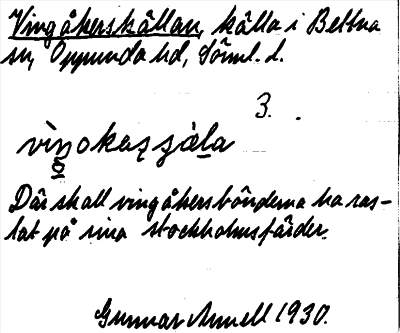 Vingåkerskällan, källa i Bettna
sn, Oppunda hd, Söml. l.
3.
Där skall vingåkersbönderna ha ras-
tat på sina stockholmsfärder.
Gunnar 1930.